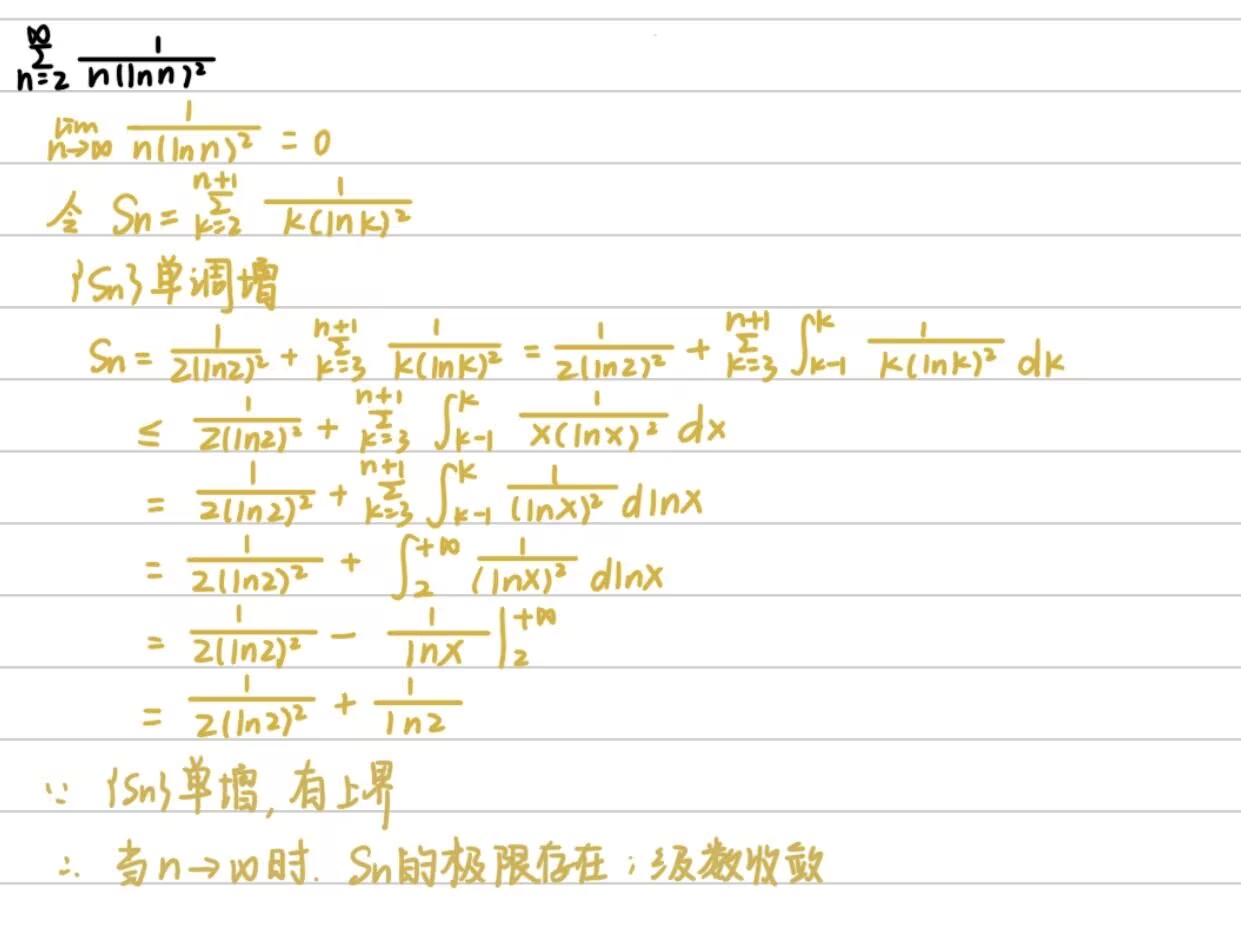 ∞∑n=2 1/(n(ln n)²)
lim n→∞ 1/(n(ln n)²) = 0
令 Sn = n+1∑k=2 1/(k(ln k)²)
{Sn}单调增
Sn = 1/(2(ln2)²) + n+1∑k=3 1/(k(ln k)²) = 1/(2(ln2)²) + n+1∑k=3 ∫k-1^k 1/(k(ln k)²) dk
≤ 1/(2(ln2)²) + n+1∑k=3 ∫k-1^k 1/(x(ln x)²) dx
= 1/(2(ln2)²) + n+1∑k=3 ∫k-1^k 1/(ln x)² dln x
= 1/(2(ln2)²) + ∫2^+∞ 1/(ln x)² dln x
= 1/(2(ln2)²) - 1/ln x |2^+∞
= 1/(2(ln2)²) + 1/ln2
∵ {Sn}单增, 有上界
∴ 当n→∞时. Sn的极限存在; 级数收敛